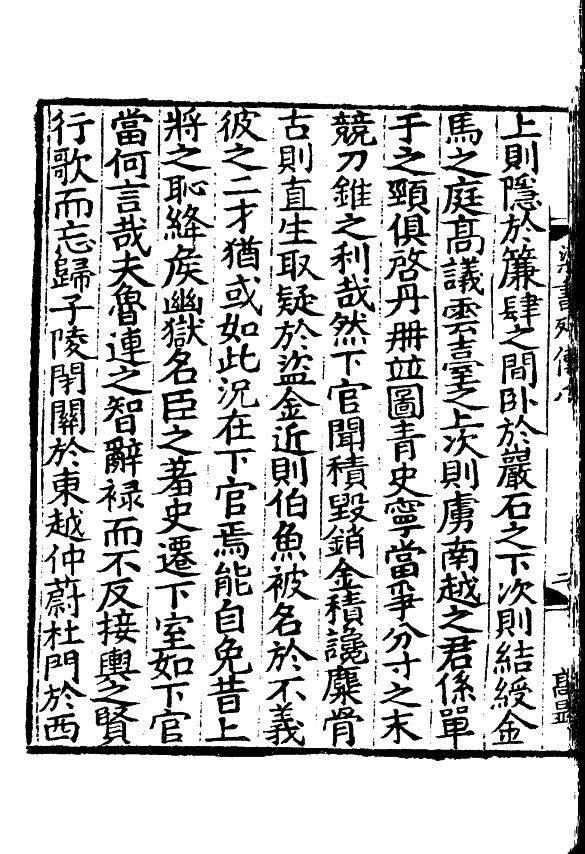 上則隱於簾肆之間卧於巖石之下次則結綬金
馬之庭髙議雲臺之上次則虜南越之君係單
于之頸俱啓丹冊並圖青史寧當爭分寸之末
競刀錐之利哉然下官聞積毀銷金積讒麋骨
古則直生取疑於盜金近則伯魚被名於不義
彼之二才猶或如此況在下官焉能自免昔上
將之恥絳侯幽獄名臣之羞史遷下室如下官
當何言哉夫魯連之智辭禄而不反接輿之賢
行歌而忘歸子陵閉關於東越仲蔚杜門於西